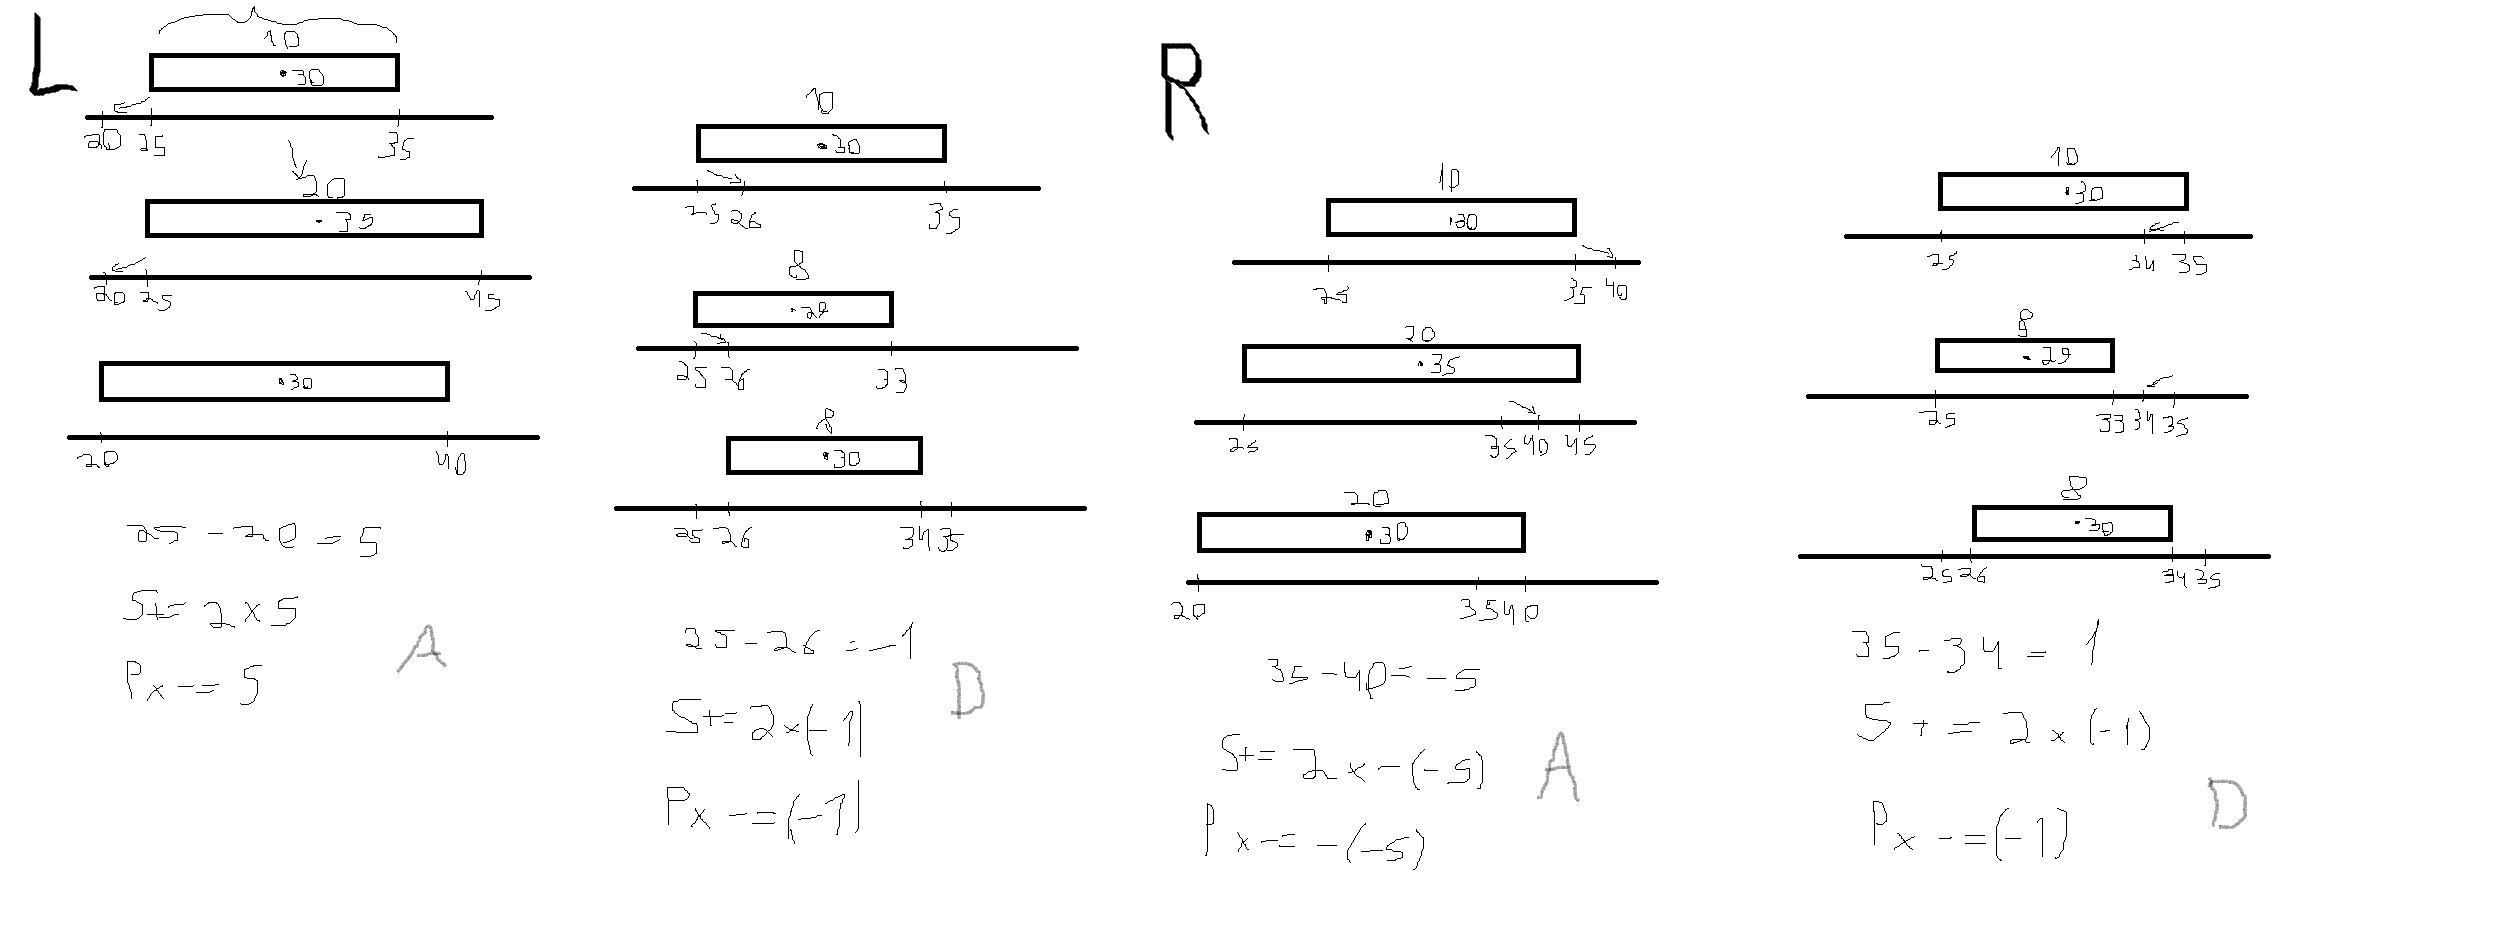 L
10
30
20 25 35
20
35
20 25 45
30
20 40
25 - 20 = 5
S += 2 x 5
Px -= 5
A
10
30
25 26 35
8
29
25 26 33
8
30
25 26 34 35
25 - 26 = -1
S += 2 x (-1)
Px -= (-1)
D
R
10
30
25 35 40
20
35
25 35 40 45
20
30
20 35 40
35 - 40 = -5
S += 2 x -(-5)
Px -= -(-5)
A
10
30
25 34 35
8
29
25 33 34 35
8
30
25 26 34 35
35 - 34 = 1
S += 2 x (-1)
Px -= (-1)
D